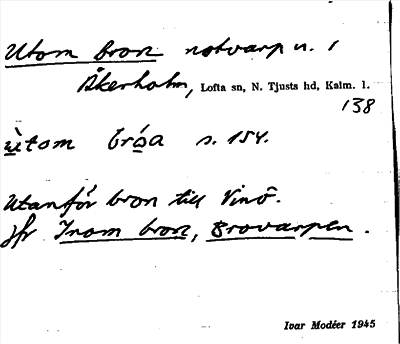 Utom bron notvarp n. 1
Åkerholm, Lofta sn, N. Tjusts hd, Kalm. l.
138
ùtom bróa s. 154.
Utanför bron till Vinö.
Jfr Inom bron, Brovarpen.
Ivar Modéer 1945